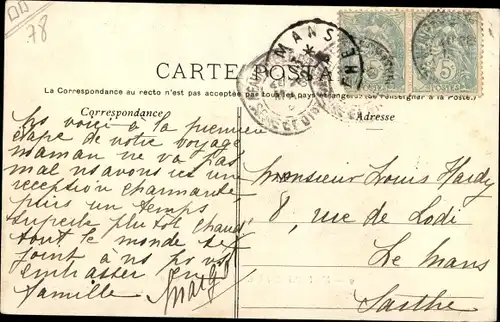 78
CARTE POSTALE
La Correspondance au recto n'est pas acceptée par tous les pays étrangers. (Se renseigner à la Poste.)
Correspondance
Adresse
MANS
SEINE ET OISE
5
Ns voici à la première
étape de votre voyage
maman ne va pas
mal ns avons ici une
réception charmante,
puis un temps
superbe plutôt chaud
tout le monde se
joint à ns pr vs
embrasser en
famille
Margot
Monsieur Louis Hardy
8, rue de Lodi
Le Mans
Sarthe